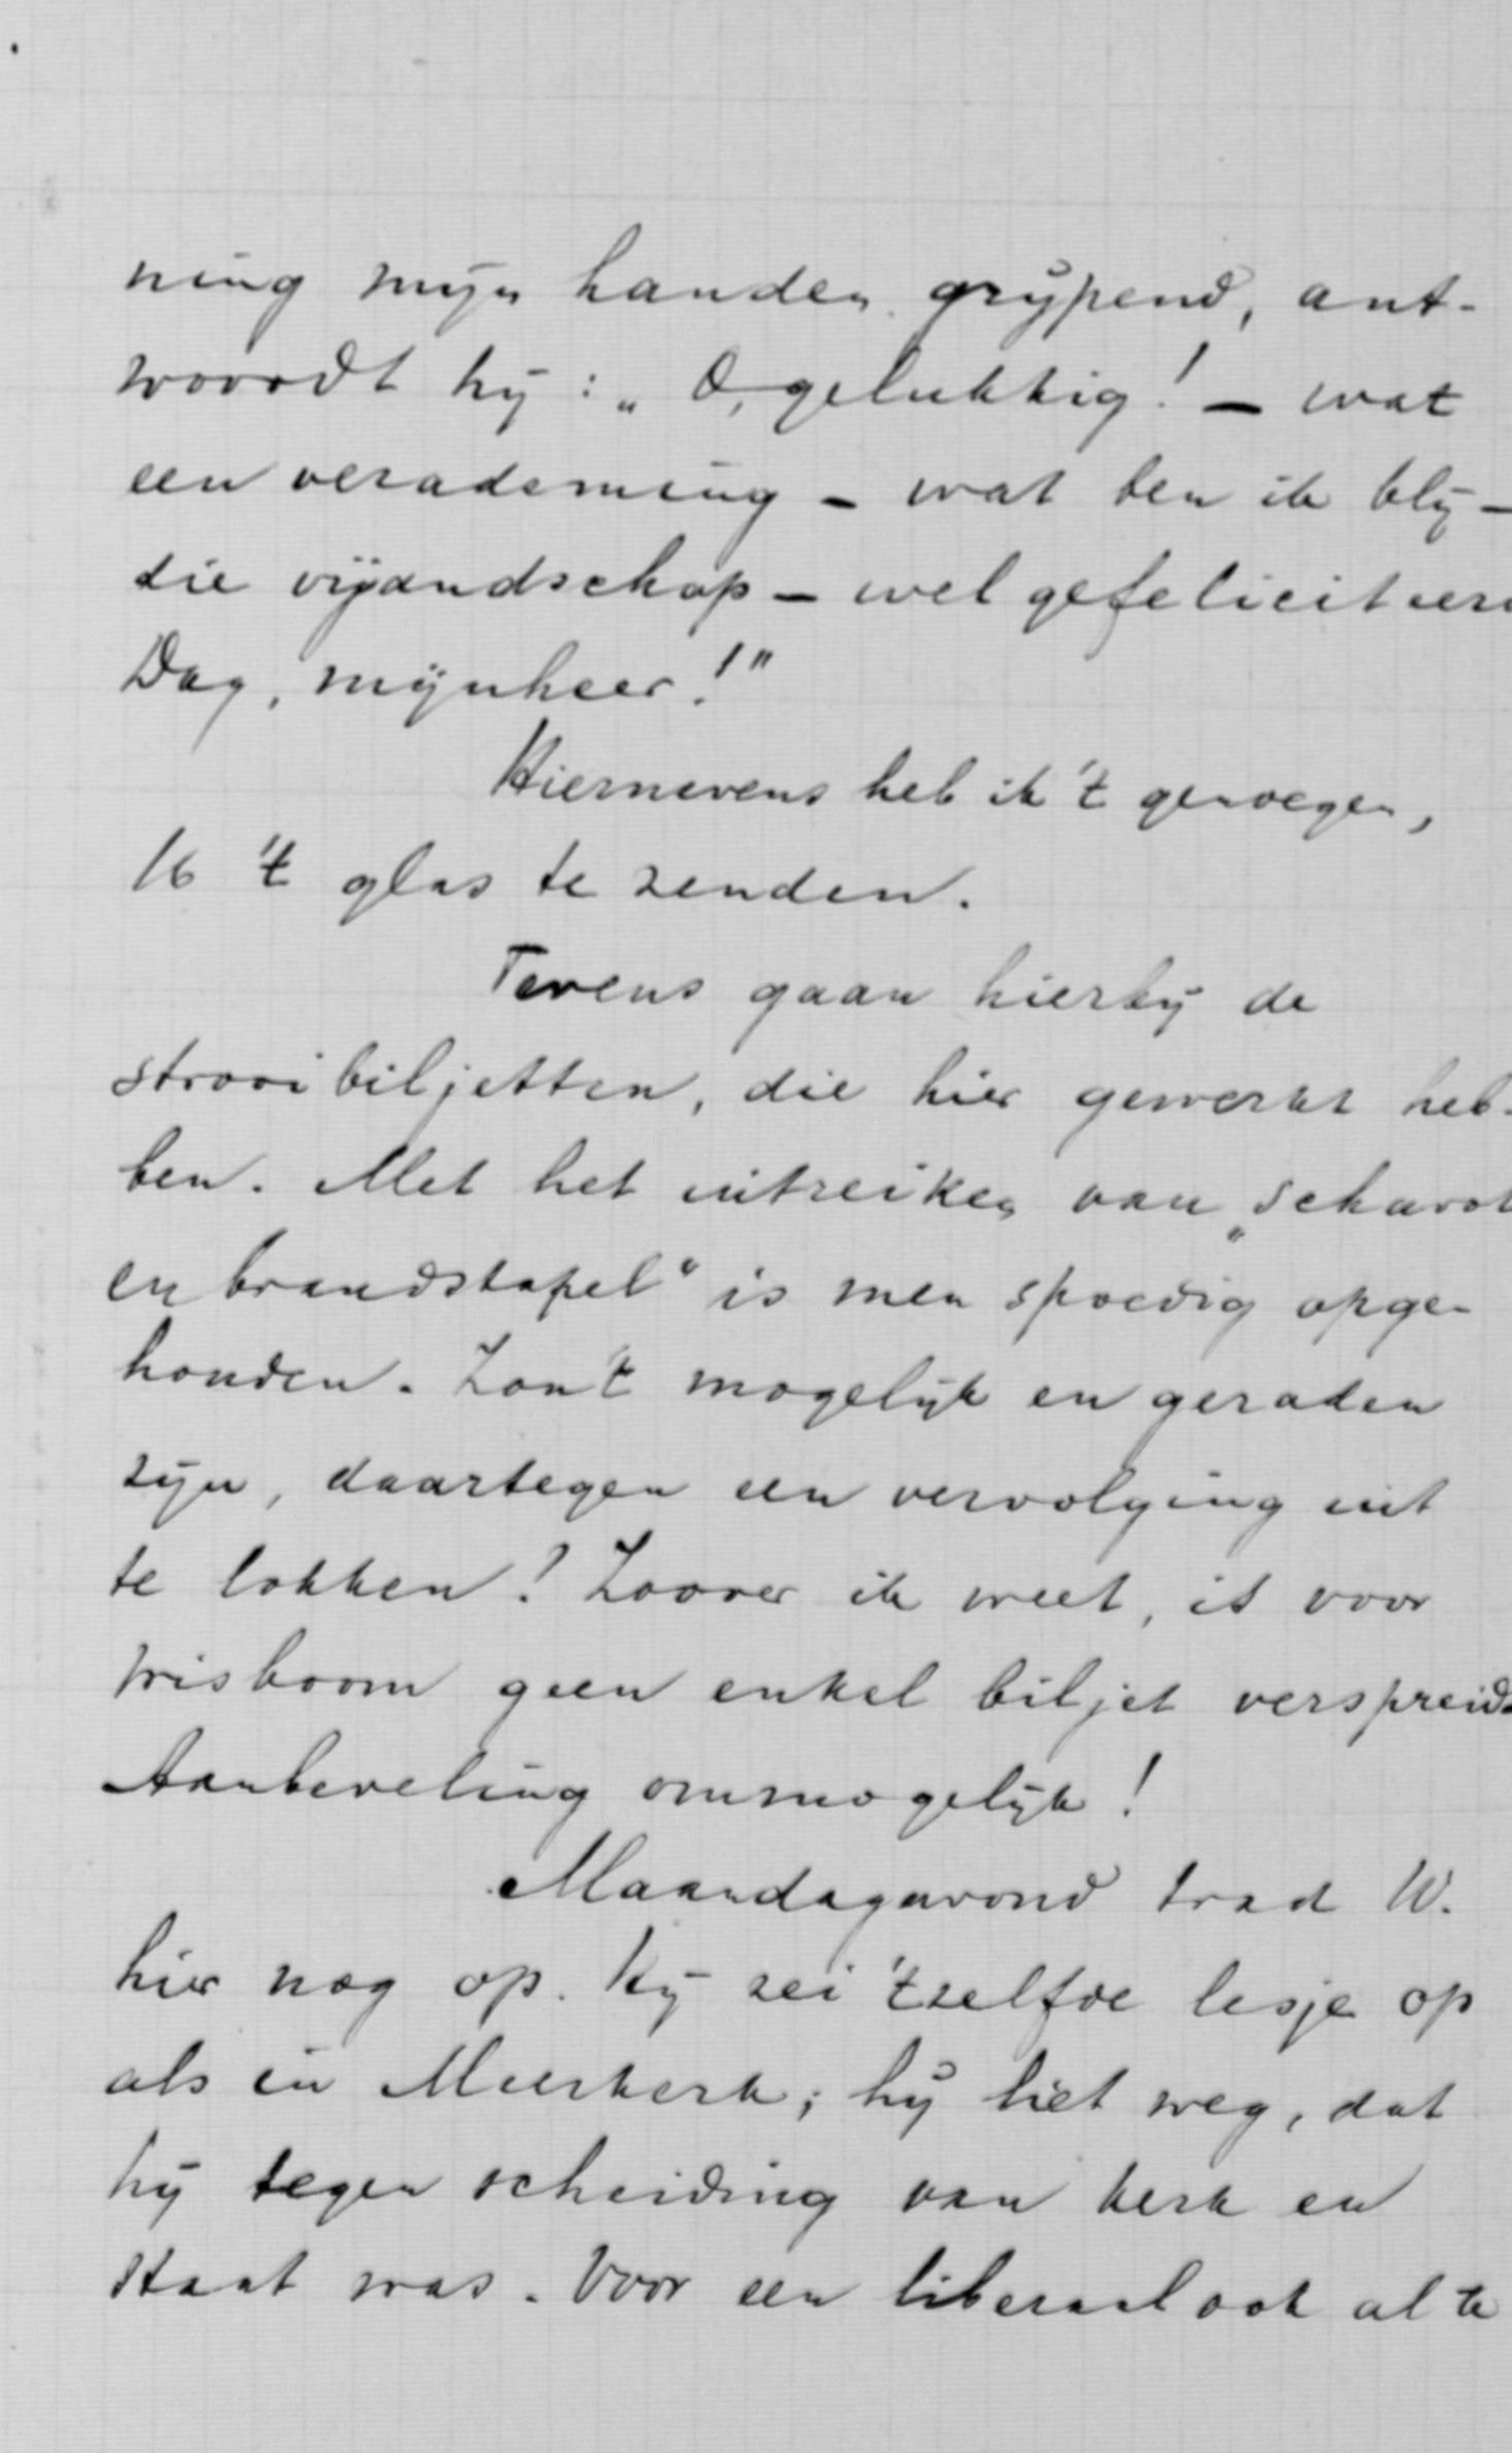 ning mijn handen grijpend, ant-
woordt hij: „O, gelukkig! – wat
een verademing – wat ben ik blij –
die vijandschap – wel gefeliciteer
Dag, mijnheer!"
Hiernevens heb ik 't genoegen,
U 't glas te zenden.
Tevens gaan hierbij de
strooibiljetten, die hier gewerkt heb-
ben. Met het uitreiken van „schavot
en brandstapel" is men spoedig opge-
houden. Zou 't mogelijk en geraden
zijn, daartegen een vervolging uit
te lokken? Zoover ik weet, is voor
Wisboom geen enkel biljet verspreid
Aanbeveling onmogelijk!
Maandagavond trad W.
hier nog op. Hij zei 'tzelfde lesje op
als in Meerkerk; hij liet weg, dat
hij tegen scheiding van kerk en
Staat was. Voor een liberaal ook al te